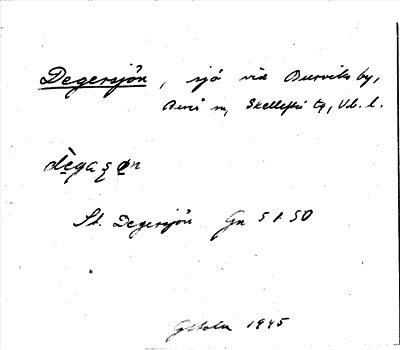 Degersjön, sjö vid Burviks by,
Bureå sn, Skellefteå tg, Vb. l.
dègaʂøn
St. Degersjön Gn 51 50
1945